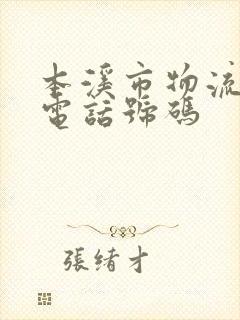 本溪市物流
電話號碼
張緒才